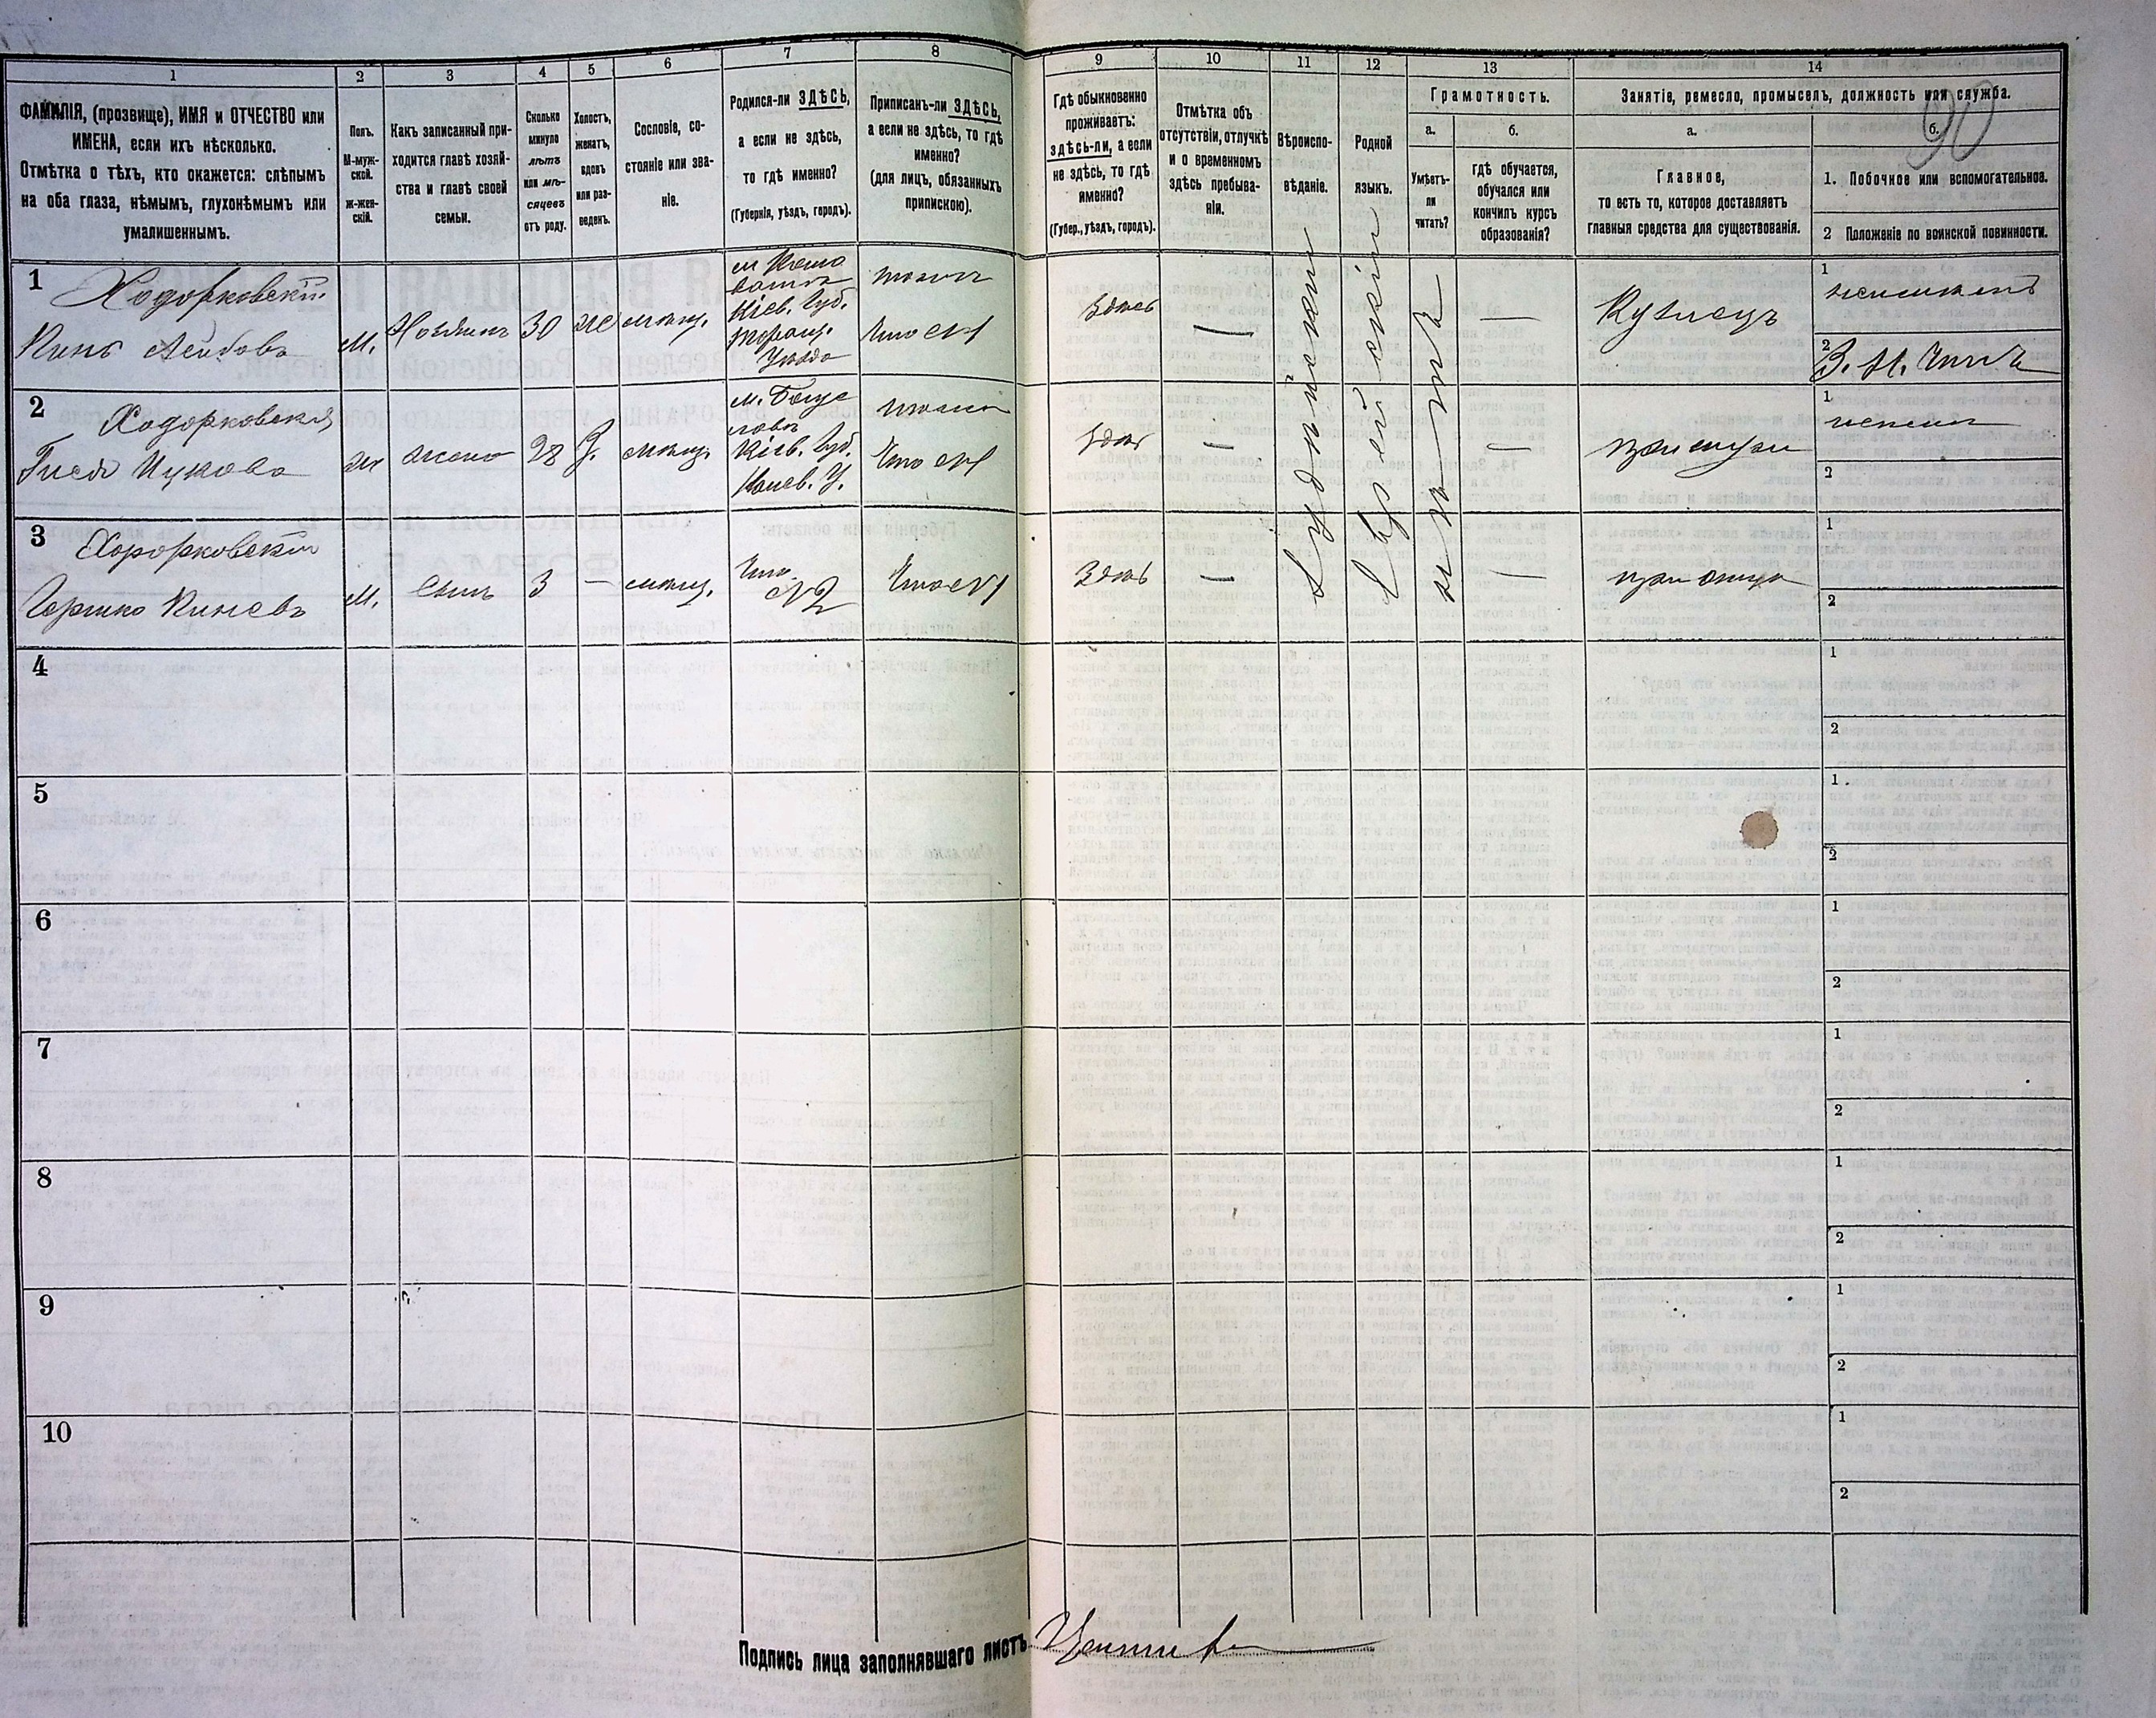 1 2 3 4 5 6 7 8 9 10 11 12 13 14
90
ФАМИЛІЯ, (прозвище), ИМЯ и ОТЧЕСТВО или
ИМЕНА, если ихъ нѣсколько.
Отмѣтка о тѣхъ, кто окажется: слѣпымъ
на оба глаза, нѣмымъ, глухонѣмымъ или
умалишеннымъ.
Полъ.
М-муж-
ской.
ж-жен-
скій.
Какъ записанный при-
ходится главѣ хозяй-
ства и главѣ своей
семьи.
Сколько
минуло
лѣтъ
или мѣ-
сяцевъ
отъ роду.
Холостъ,
женатъ,
вдовъ
или раз-
веденъ.
Сословіе, со-
стояніе или зва-
ніе.
Родился-ли ЗДѢСЬ,
а если не здѣсь,
то гдѣ именно?
(Губернія, уѣздъ, городъ).
Приписанъ-ли ЗДѢСЬ,
а если не здѣсь, то гдѣ
именно?
(для лицъ, обязанныхъ
припискою).
Гдѣ обыкновенно
проживаетъ:
здѣсь-ли, а если
не здѣсь, то гдѣ
именно?
(Губер., уѣздъ, городъ).
Отмѣтка объ
отсутствіи, отлучкѣ
и о временномъ
здѣсь пребыва-
ніи.
Вѣроиспо-
вѣданіе.
Родной
языкъ.
Грамотность.
а.
Умѣетъ-
ли
читать?
б.
гдѣ обучается,
обучался или
кончилъ курсъ
образованія?
Занятіе, ремесло, промыселъ, должность или служба.
а.
Главное,
то есть то, которое доставляетъ
главныя средства для существованія.
б.
1. Побочное или вспомогательное.
2 Положеніе по воинской повинности.
1
Ходорковскій
Кинъ Лейбовъ
М. Хозяинъ 30 же мѣщ.
Кіев. Губ.
Таращ.
Уѣзда
Здѣсь
—
Іудейское
Еврейскій
нѣтъ
—
Кузнецъ
1
2
2
Ходорковская
ж жена 28 З. мѣщ.
м. Богус
лавъ
Кіев. Губ.
Канев. У.
Здѣсь
—
—
при мужѣ
1
2
3
Ходорковскій
Гершко Киневъ
М. Сынъ 3 — мѣщ.
№2
№1
Здѣсь
—
—
при отцѣ
1
2
4
1
2
5
1
2
6
1
2
7
1
2
8
1
2
9
1
2
10
1
2
Подпись лица заполнявшаго листъ